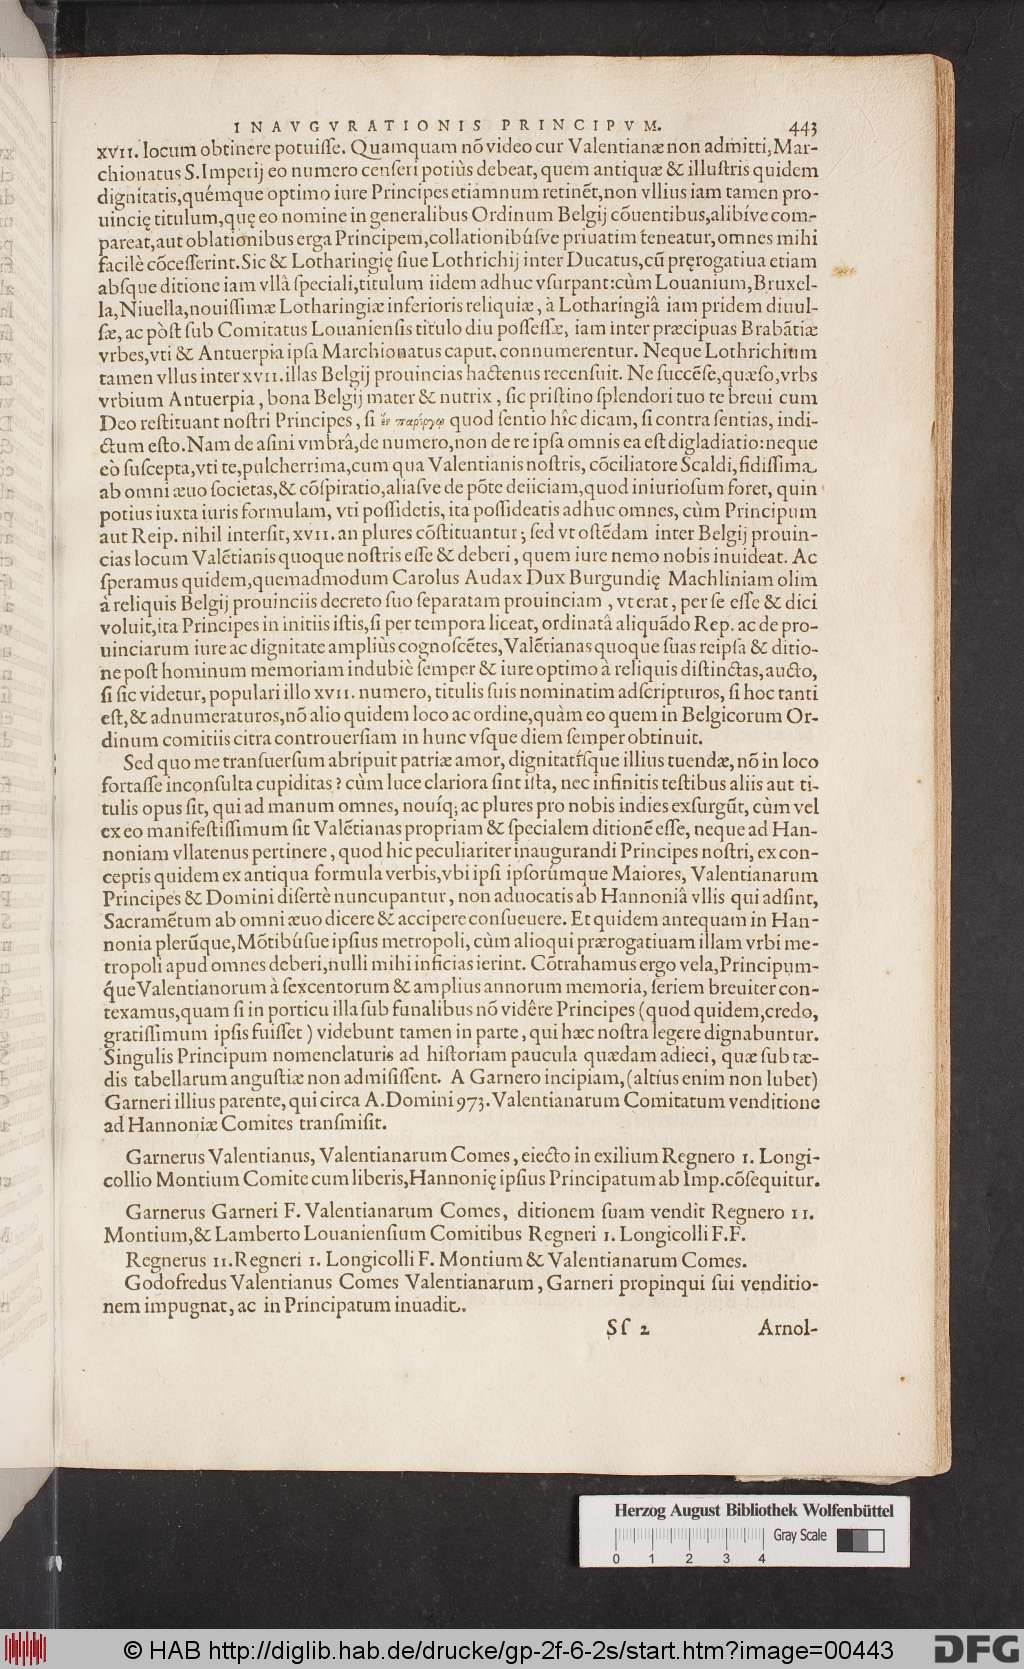 INAVGVRATIONIS PRINCIPVM. 443
XVII. locum obtinere potuiſſe. Quamquam nō video cur Valentianæ non admitti, Mar-
chionatus S. Imperij eo numero cenſeri potiùs debeat, quem antiquæ & illuſtris quidem
dignitatis, quémque optimo iure Principes etiamnum retinēt, non vllius iam tamen pro-
uincię titulum, quę eo nomine in generalibus Ordinum Belgij cōuentibus, alibíve com-
pareat, aut oblationibus erga Principem, collationibúſve priuatim teneatur, omnes mihi
facilè cōceſſerint. Sic & Lotharingię ſiue Lothrichij inter Ducatus, cū pręrogatiua etiam
abſque ditione iam vllâ ſpeciali, titulum iidem adhuc vſurpant: cùm Louanium, Bruxel-
la, Niuella, nouiſſimæ Lotharingiæ inferioris reliquiæ, à Lotharingiâ iam pridem diuul-
ſæ, ac pòſt ſub Comitatus Louanienſis titulo diu poſſeſſæ, iam inter præcipuas Brabātiæ
vrbes, vti & Antuerpia ipſa Marchionatus caput, connumerentur. Neque Lothrichium
tamen vllus inter XVII. illas Belgij prouincias hactenus recenſuit. Ne ſuccēſe, quæſo, vrbs
vrbium Antuerpia, bona Belgij mater & nutrix, ſic priſtino ſplendori tuo te breui cum
Deo reſtituant noſtri Principes, ſi ἐν παρέργῳ quod ſentio hîc dicam, ſi contra ſentias, indi-
ctum eſto. Nam de aſini vmbrâ, de numero, non de re ipſa omnis ea eſt digladiatio: neque
eò ſuſcepta, vti te, pulcherrima, cum qua Valentianis noſtris, cōciliatore Scaldi, fidiſſima
ab omni æuo ſocietas, & cōſpiratio, aliaſve de pōte deiiciam, quod iniurioſum foret, quin
potius iuxta iuris formulam, vti poſſidetis, ita poſſideatis adhuc omnes, cùm Principum
aut Reip. nihil interſit, XVII. an plures cōſtituantur; ſed vt oſtēdam inter Belgij prouin-
cias locum Valētianis quoque noſtris eſſe & deberi, quem iure nemo nobis inuideat. Ac
ſperamus quidem, quemadmodum Carolus Audax Dux Burgundię Machliniam olim
à reliquis Belgij prouinciis decreto ſuo ſeparatam prouinciam, vt erat, per ſe eſſe & dici
voluit, ita Principes in initiis iſtis, ſi per tempora liceat, ordinatâ aliquādo Rep. ac de pro-
uinciarum iure ac dignitate ampliùs cognoſcētes, Valētianas quoque ſuas reipſa & ditio-
ne poſt hominum memoriam indubiè ſemper & iure optimo à reliquis diſtinctas, aucto,
ſi ſic videtur, populari illo XVII. numero, titulis ſuis nominatim adſcripturos, ſi hoc tanti
eſt, & adnumeraturos, nō alio quidem loco ac ordine, quàm eo quem in Belgicorum Or-
dinum comitiis citra controuerſiam in hunc vſque diem ſemper obtinuit.
Sed quo me tranſuerſum abripuit patriæ amor, dignitatíſque illius tuendæ, nō in loco
fortaſſe inconſulta cupiditas? cùm luce clariora ſint iſta, nec infinitis teſtibus aliis aut ti-
tulis opus ſit, qui ad manum omnes, nouíq; ac plures pro nobis indies exſurgūt, cùm vel
ex eo manifeſtiſſimum ſit Valētianas propriam & ſpecialem ditionē eſſe, neque ad Han-
noniam vllatenus pertinere, quod hic peculiariter inaugurandi Principes noſtri, ex con-
ceptis quidem ex antiqua formula verbis, vbi ipſi ipſorúmque Maiores, Valentianarum
Principes & Domini diſertè nuncupantur, non aduocatis ab Hannoniâ vllis qui adſint,
Sacramētum ab omni æuo dicere & accipere conſueuere. Et quidem antequam in Han-
nonia plerūque, Mōtibúſue ipſius metropoli, cùm alioqui prærogatiuam illam vrbi me-
tropoli apud omnes deberi, nulli mihi inficias ierint. Cōtrahamus ergo vela, Principum-
q́ue Valentianorum à ſexcentorum & amplius annorum memoria, ſeriem breuiter con-
texamus, quam ſi in porticu illa ſub funalibus nō vidêre Principes (quod quidem, credo,
gratiſſimum ipſis fuiſſet) videbunt tamen in parte, qui hæc noſtra legere dignabuntur.
Singulis Principum nomenclaturis ad hiſtoriam paucula quædam adieci, quæ ſub tæ-
dis tabellarum anguſtiæ non admiſiſſent. A Garnero incipiam, (altius enim non lubet)
Garneri illius parente, qui circa A. Domini 973. Valentianarum Comitatum venditione
ad Hannoniæ Comites tranſmiſit.
Garnerus Valentianus, Valentianarum Comes, eiecto in exilium Regnero I. Longi-
collio Montium Comite cum liberis, Hannonię ipſius Principatum ab Imp. cōſequitur.
Garnerus Garneri F. Valentianarum Comes, ditionem ſuam vendit Regnero II.
Montium, & Lamberto Louanienſium Comitibus Regneri I. Longicolli F.F.
Regnerus II. Regneri I. Longicolli F. Montium & Valentianarum Comes.
Godofredus Valentianus Comes Valentianarum, Garneri propinqui ſui venditio-
nem impugnat, ac in Principatum inuadit.
Sſ 2 Arnol-
Herzog August Bibliothek Wolfenbüttel
Gray Scale
0 1 2 3 4
© HAB http://diglib.hab.de/drucke/gp-2f-6-2s/start.htm?image=00443 DFG